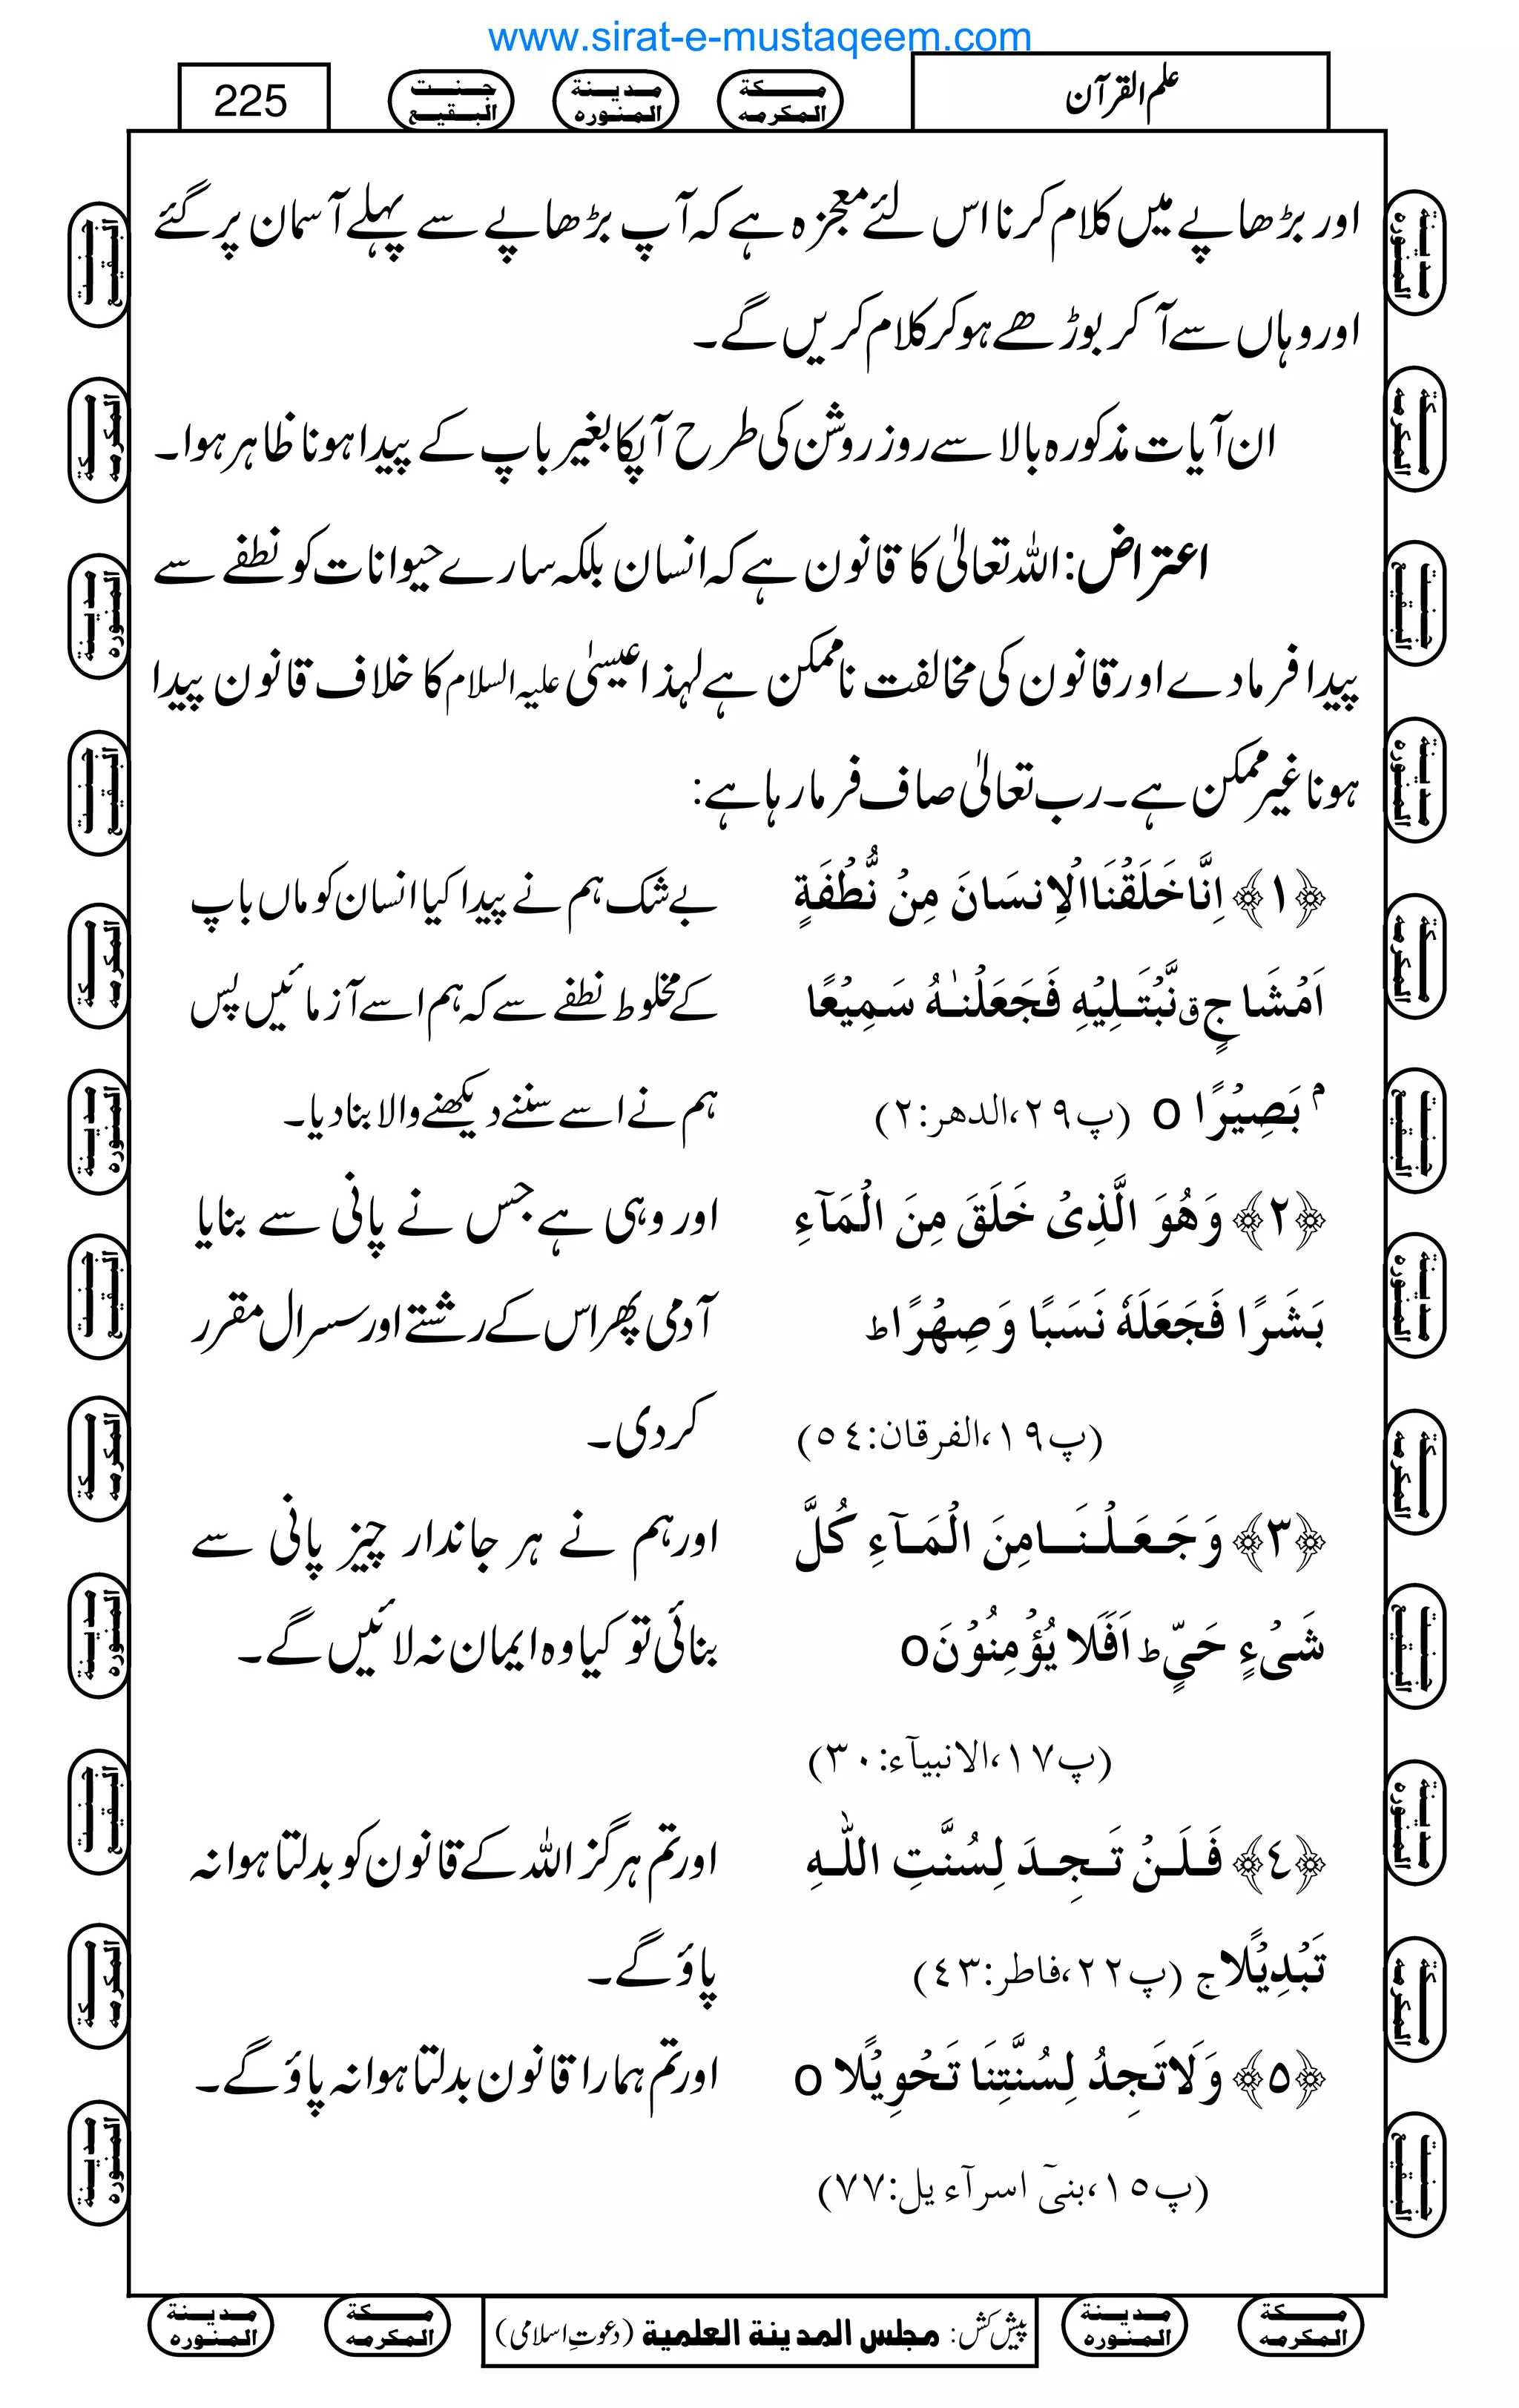 www.sirat-e-mustaqeem.com
علم القرآن
مكة المكرمه
مدينة المنوره
جنت البقيع
225
اور بڑھاپے میں کلام کرنا اس لئے معجزہ ہے کہ آپ بڑھاپے سے پہلے آسمان پر گئے
اور وہاں سے آ کر بوڑھے ہو کر کلام کریں گے۔
ان آیات مذکورہ بالا سے روز روشن کی طرح آپ کا بغیر باپ کے پیدا ہونا ظاہر ہوا۔
اعتراض: اللہ تعالیٰ کا قانون ہے کہ انسان بلکہ سارے حیوانات کو نطفے سے
پیدا فرمادے اور قانون کی مخالفت ناممکن ہے لہذا عیسیٰ علیہ السلام کا خلاف قانون پیدا
ہونا غیر ممکن ہے۔ رب تعالیٰ صاف فرما رہا ہے:
﴿١﴾ اِنَّا خَلَقْنَا الْاِنسَانَ مِنْ نُّطْفَةٍ
اَمْشَاجٍ ق نَّبْتَلِيْهِ فَجَعَلْنٰهُ سَمِيْعًا
م بَصِيْرًا o (پ٢٩،الدھر:٢)
بے شک ہم نے پیدا کیا انسان کو ماں باپ
کے مخلوط نطفے سے کہ ہم اسے آزمائیں پس
ہم نے اسے سننے دیکھنے والا بنا دیا۔
﴿٢﴾ وَهُوَ الَّذِىْ خَلَقَ مِنَ الْمَآءِ
بَشَرًا فَجَعَلَهٗ نَسَبًا وَ صِهْرًا ط
(پ١٩،الفرقان:٥٤)
اور وہی ہے جس نے پانی سے بنایا
آدمی پھر اس کے رشتے اور سسرال مقرر
کردی۔
﴿٣﴾ وَجَعَلْنَا مِنَ الْمَآءِ كُلَّ
شَىْءٍ حَيٍّ ط اَفَلَا يُؤْمِنُوْنَ o
(پ١٧،الانبیآء:٣٠)
اور ہم نے ہر جاندار چیز پانی سے
بنائی تو کیا وہ ایمان نہ لائیں گے۔
﴿٤﴾ فَلَنْ تَجِدَ لِسُنَّتِ اللّٰهِ
تَبْدِيْلًا ج (پ٢٢،فاطر:٤٣)
اور تم ہرگز اللہ کے قانون کو بدلتا ہوا نہ
پاؤ گے۔
﴿٥﴾ وَلَا تَجِدُ لِسُنَّتِنَا تَحْوِيْلًا o
(پ١٥،بنیٓ اسرآء یل:٧٧)
اور تم ہمارا قانون بدلتا ہوا نہ پاؤ گے۔
پیش کش: مجلس المدينة العلمية (دعوتِ اسلامی)
مكة المكرمه
مدينة المنوره
مكة المكرمه
مدينة المنوره